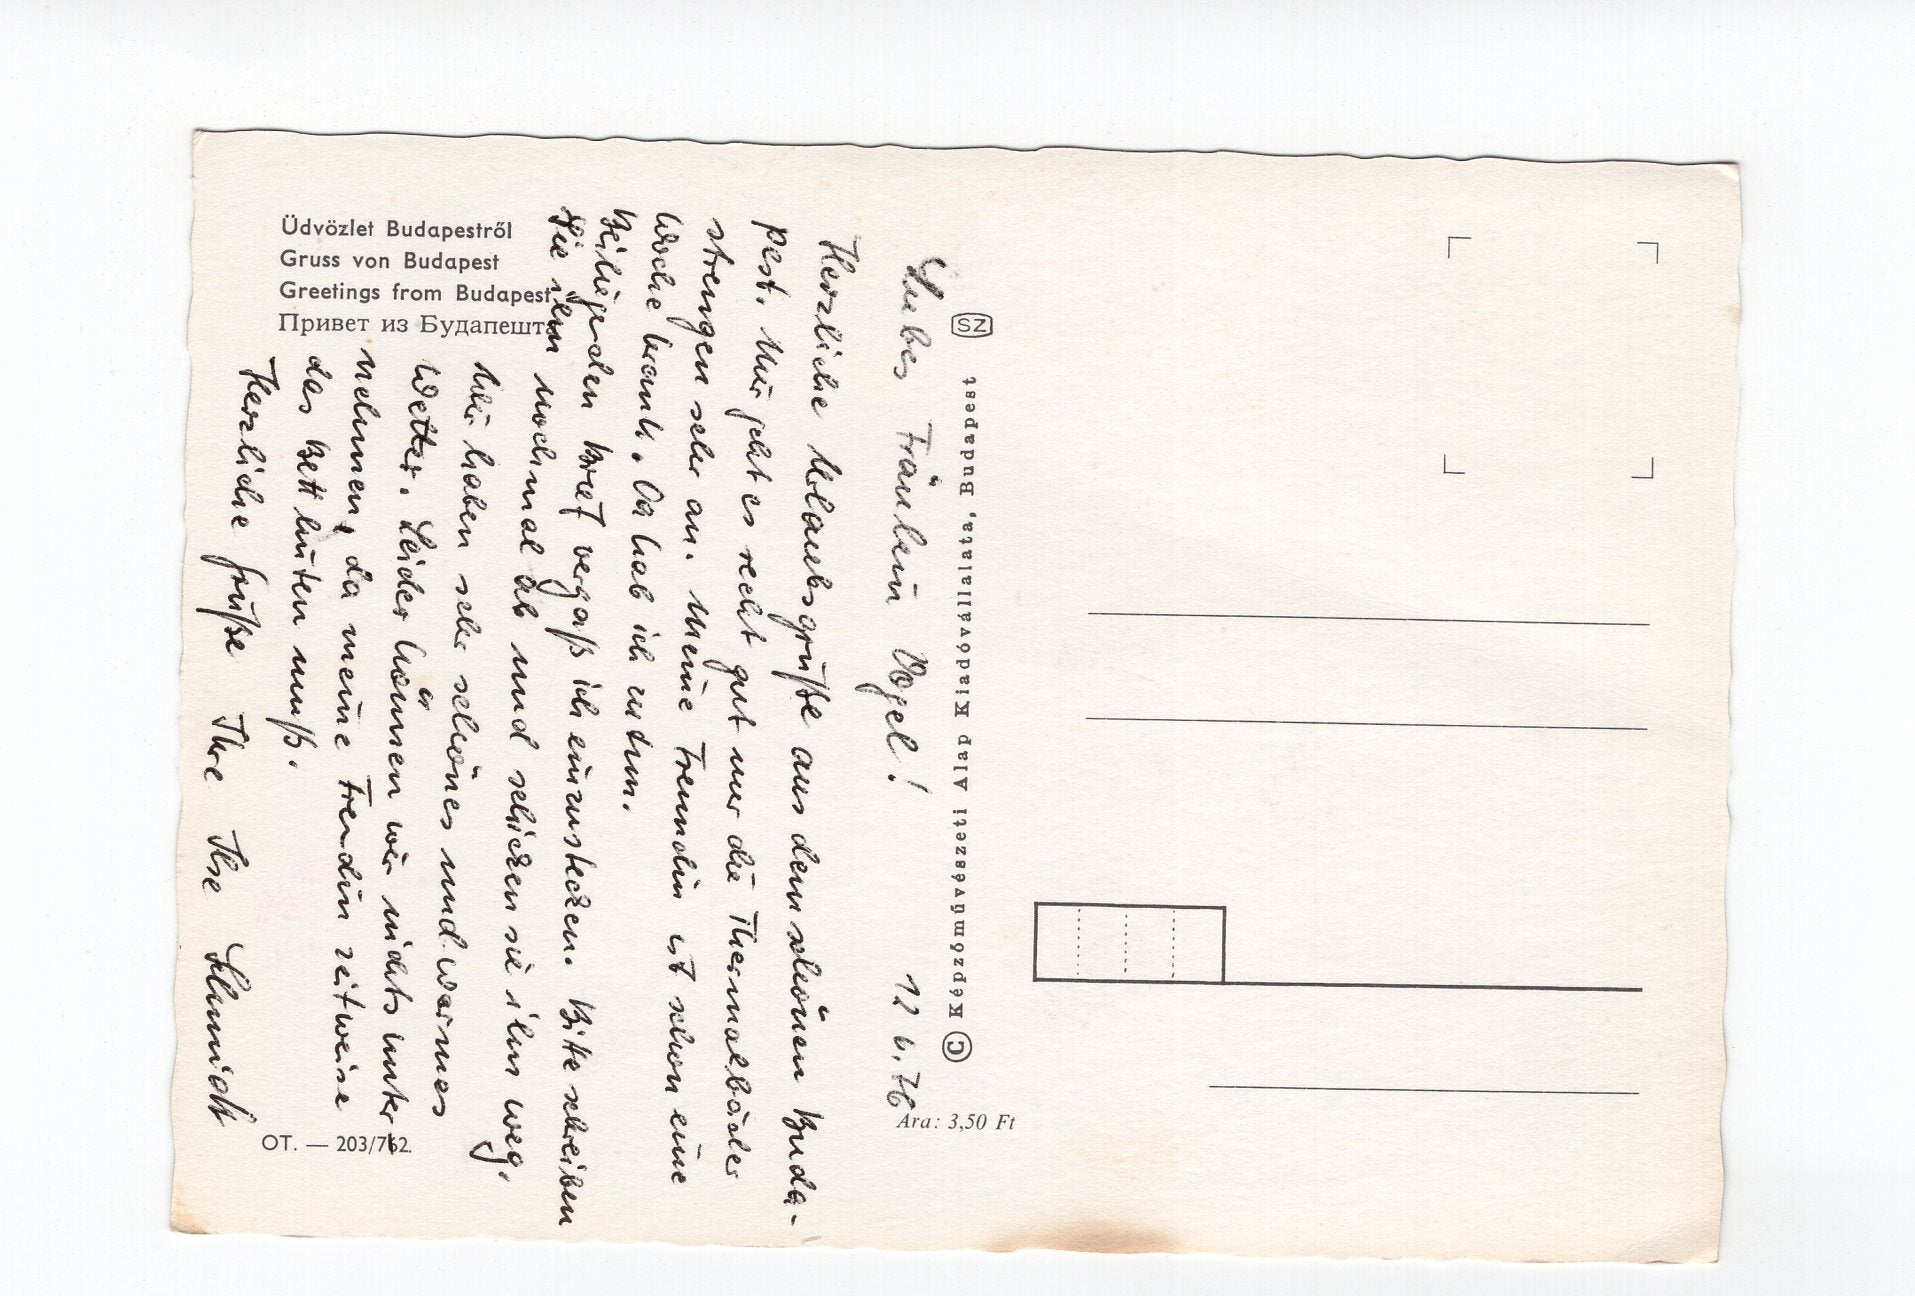 Üdvözlet Budapestről
Gruss von Budapest
Greetings from Budapest
Привет из Будапешта
SZ
© Képzőművészeti Alap Kiadóvállalata, Budapest
Ára: 3,50 Ft
OT. — 203/762.
Liebes Fräulein Vogel! 12 6. 76
Herzliche Urlaubsgrüße aus dem schönen Buda-
pest. Mir geht es recht gut nur die Thermalbäder
strengen sehr an. Meine Freundin ist schon eine
Woche krank. Da hab ich zu tun.
Beiliegenden Brief vergaß ich einzustecken. Bitte schreiben
Sie ihn nochmal ab und schicken sie ihn weg.
Wir haben sehr schönes und warmes
Wetter. Leider können wir nichts unter
nehmen, da meine Freundin zeitweise
das Bett hüten muß.
Herzliche Grüße Ihre Ilse Schmidt